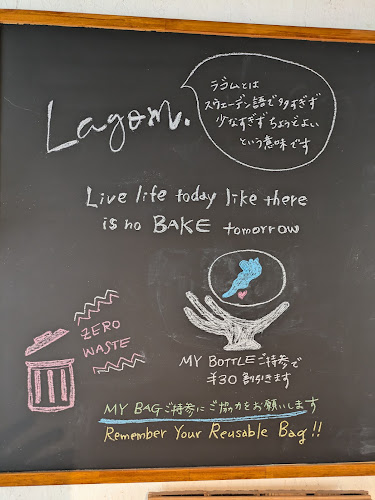 Lagom.
ラゴムとは
スウェーデン語で多すぎず
少なすぎずちょうどよい
という意味です
Live life today like there
is no BAKE tomorrow
ZERO
WASTE
MY BOTTLEご持参で
¥30 割引きます
MY BAGご持参にご協力をお願いします
Remember Your Reusable Bag!!